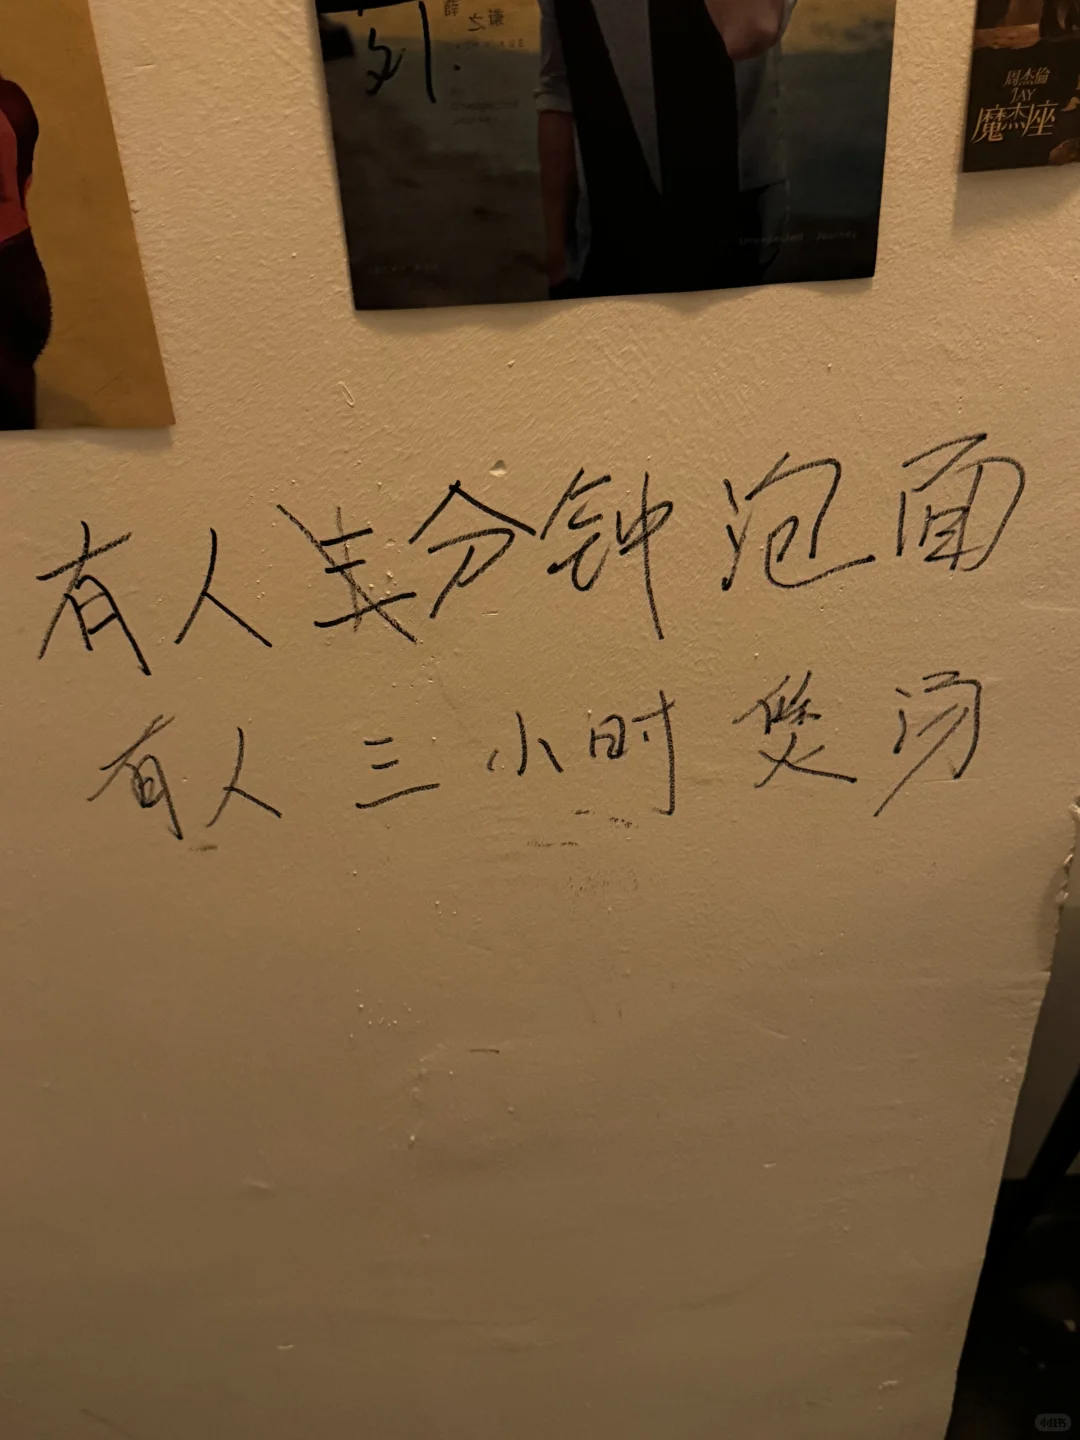 薛之谦
周杰倫
JAY
魔杰座
有人三分钟泡面
有人三小时煲汤
小红书